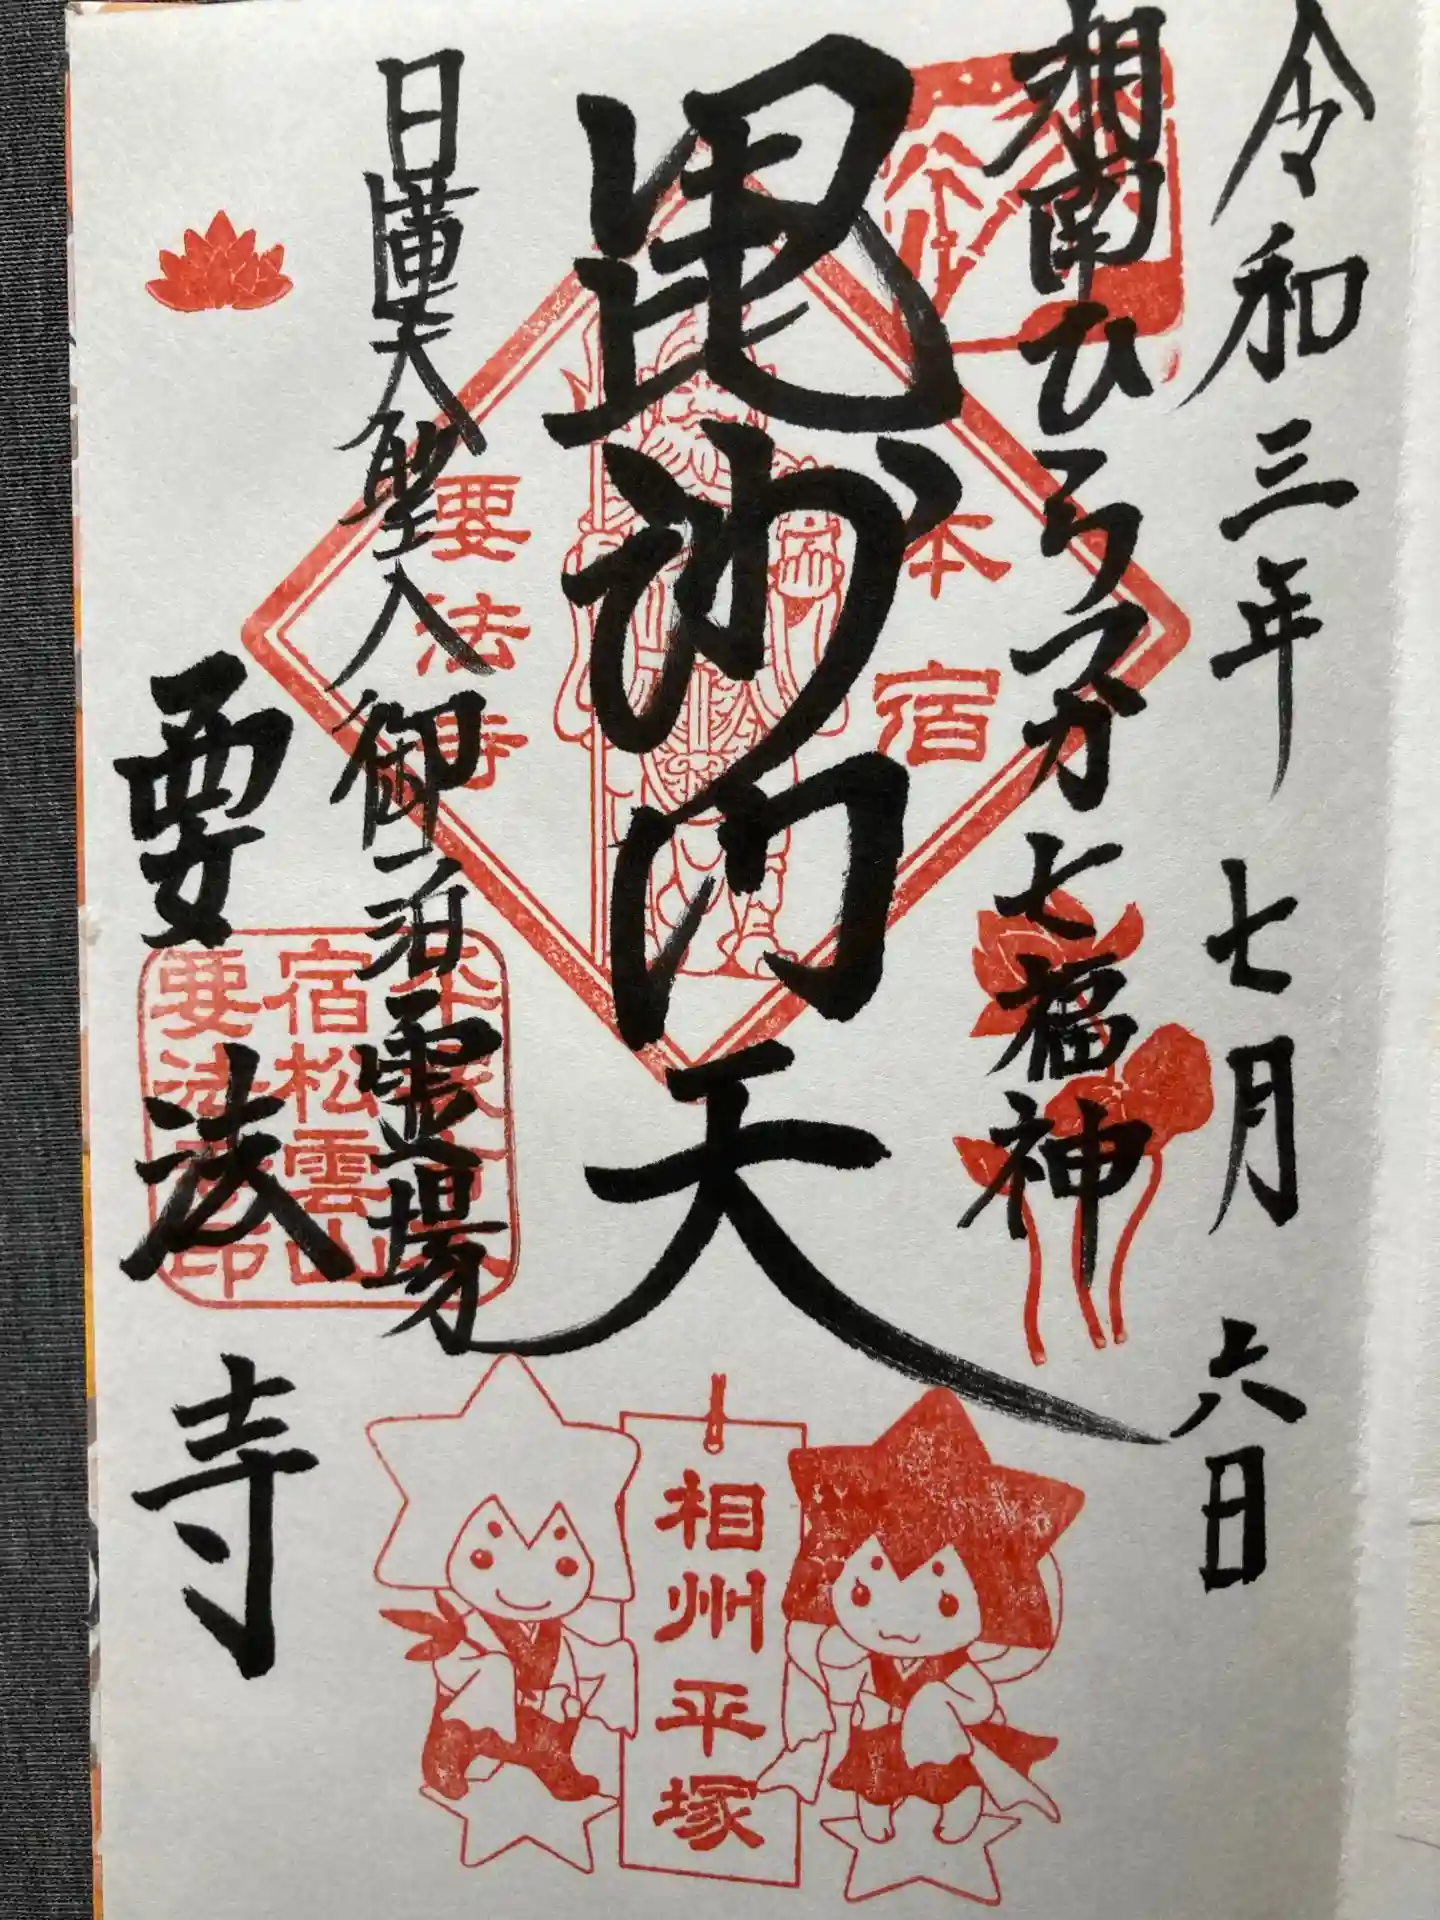 令和三年 七月 六日
湘南ひらつか七福神
毘沙門天
日蓮大聖人御泊霊場
要法寺
本宿
要法寺
宿松雲山
要法
印
相州平塚